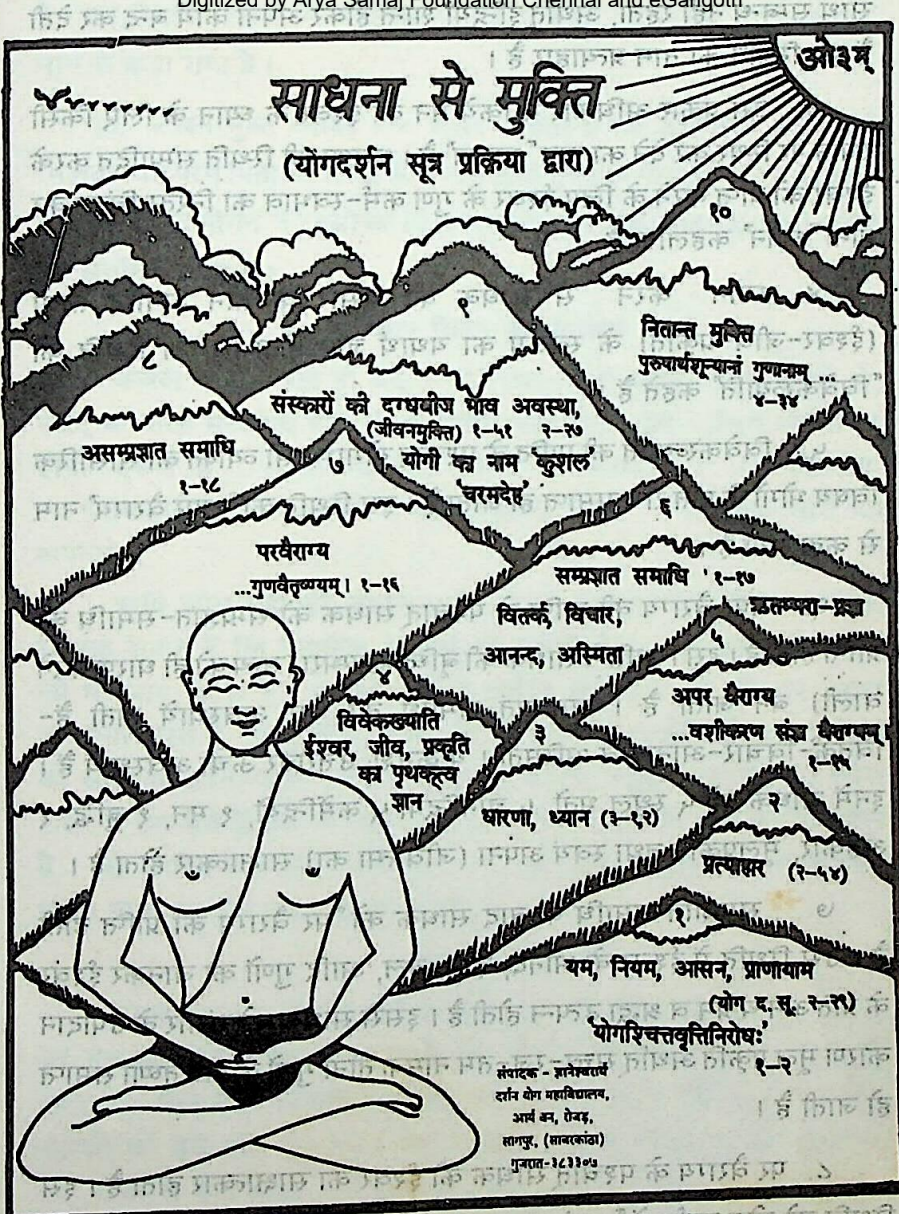 Digitized by Arya Samaj Foundation Chennai and eGangotri
ओ३म्
साधना से मुक्ति
(योगदर्शन सूत्र प्रक्रिया द्वारा)
१०
नितान्त मुक्ति
पुरुषार्थशून्यानां गुणानाम् ...
४-३४
९
संस्कारों की दग्धबीज भाव अवस्था,
(जीवनमुक्ति) १-५१ २-२७
योगी का नाम 'कुशल'
'चरमदेह'
८
असम्प्रज्ञात समाधि
१-१८
७
परवैराग्य
...गुणवैतृष्ण्यम्। १-१६
६
सम्प्रज्ञात समाधि १-१७
ऋतम्भरा-प्रज्ञा
वितर्क, विचार,
आनन्द, अस्मिता
५
अपर वैराग्य
...वशीकरण संज्ञा वैराग्यम्।
१-१५
४
विवेकख्याति
ईश्वर, जीव, प्रकृति
का पृथकत्व
ज्ञान
३
धारणा, ध्यान (३-१,२)
२
प्रत्याहार (२-५४)
१
यम, नियम, आसन, प्राणायाम
(योग द. सू. २-२९)
'योगश्चित्तवृत्तिनिरोधः'
१-२
संपादक - ज्ञानेश्वरार्य
दर्शन योग महाविद्यालय,
आर्य वन, रोजड़,
सागपुर, (साबरकांठा)
गुजरात-३८३३०७